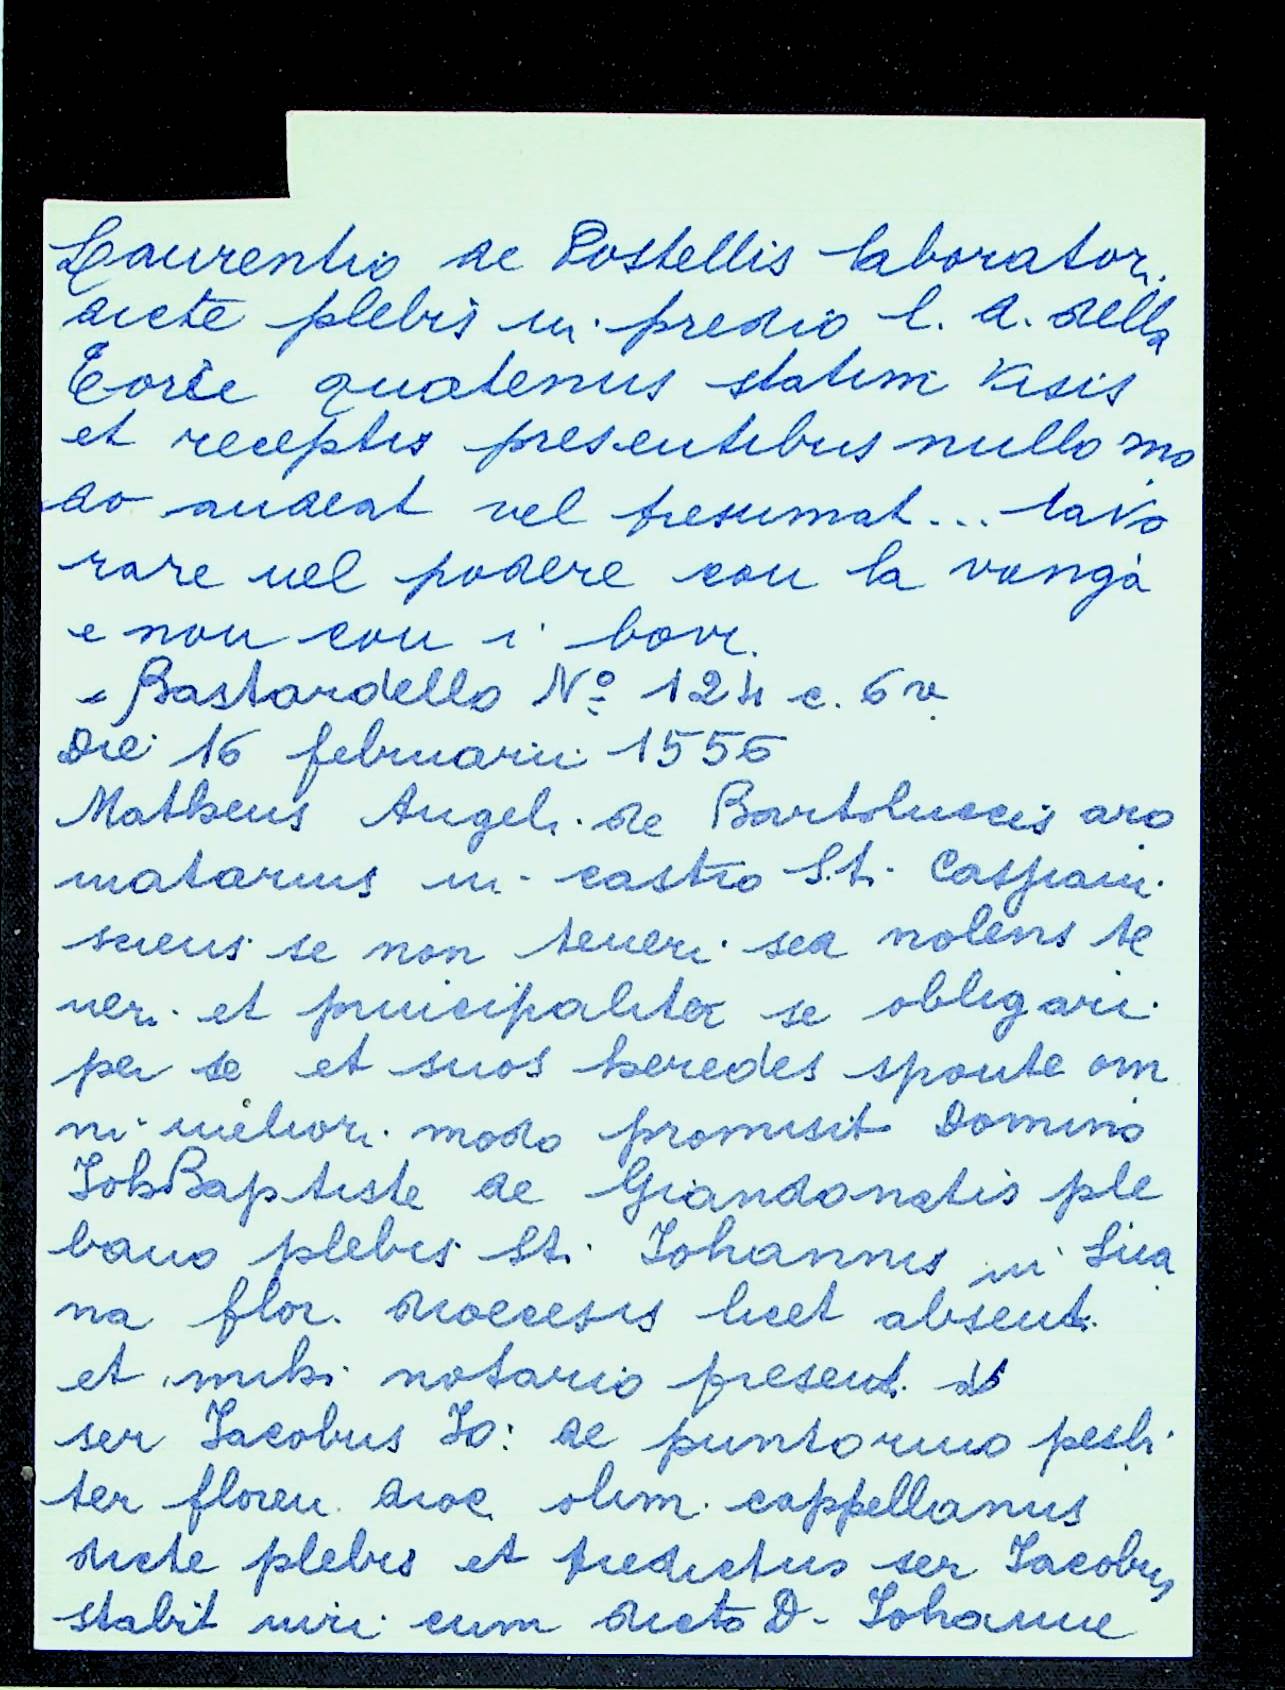 Laurentio de Postellis laboratori
dicte plebis in predio l. d. della
Corte quatenus statim visis
et receptis presentibus nullo mo
do audeat vel presumat... lavo
rare nel podere con la vanga
e non con i bovi.
- Bastardello Nº 124 c. 6v
Die 16 februarii 1556
Matheus Angeli de Bartoluccis aro
matarius in castro S.ti Cassiani
sciens se non teneri sed nolens te
neri et principaliter se obligari
per se et suos heredes sponte om
ni meliori modo promisit Domino
JohBaptiste de Giandonatis ple
bano plebis Sti Johannis in Sua
na flor. diocesis licet absenti
et mihi notario presenti
ser Jacobus Jo: de puntormo pesbi
ter floren. dioc. olim cappellanus
dicte plebis et predictus ser Jacobus
stabit cum dicto D. Johanne